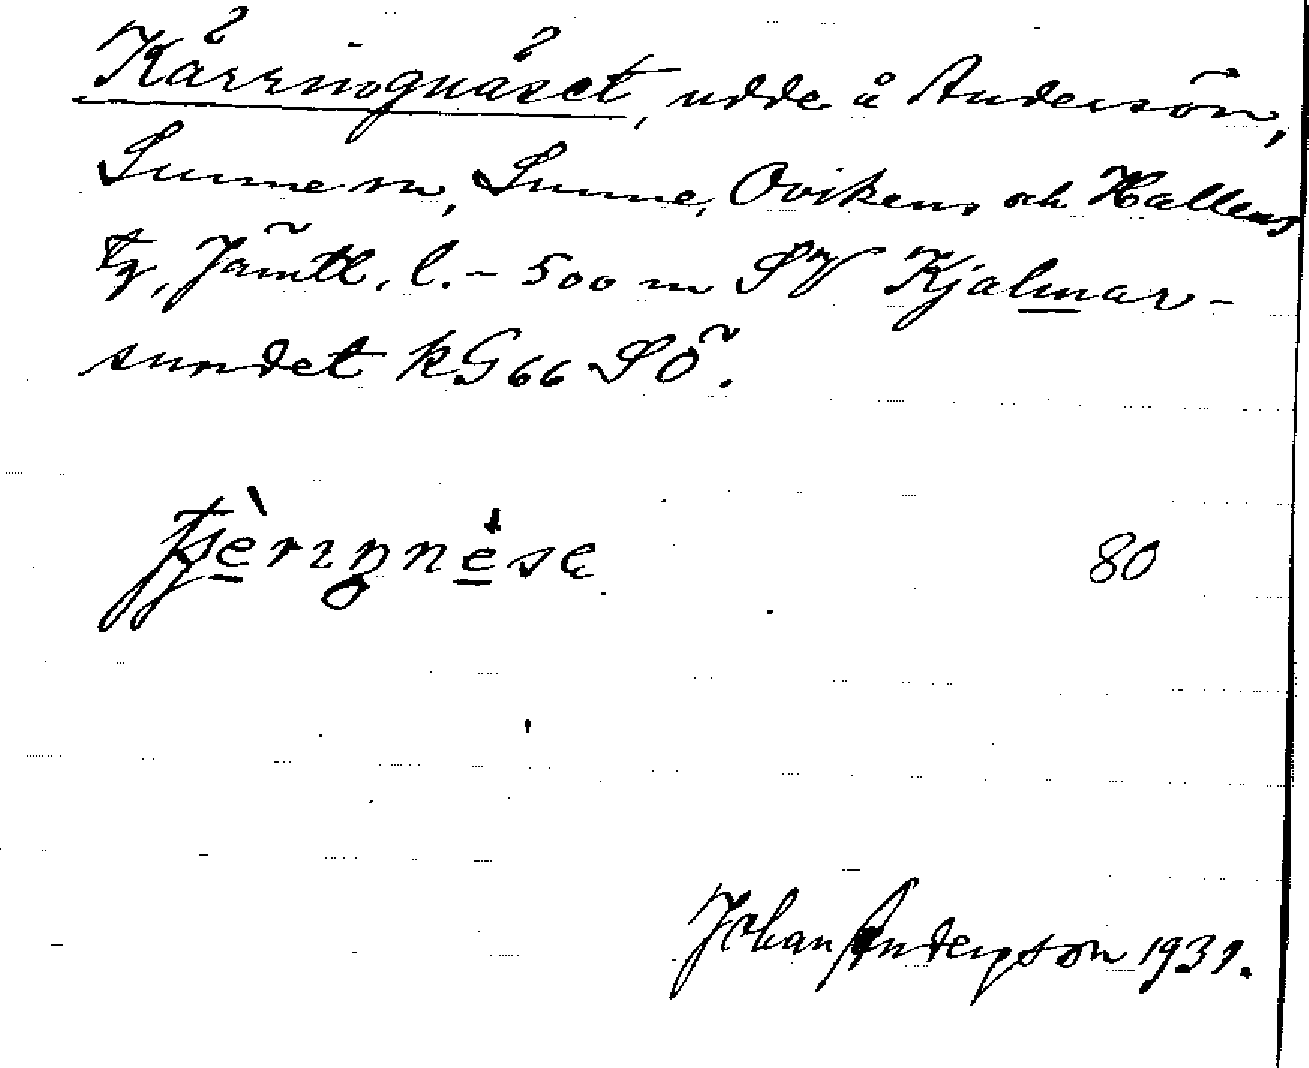 Kärringnäset, udde å Andersön,
Sunne sn, Sunne, Ovikens och Hallens
tg, Jämtl. l. – 500 m SV Kjalmar-
sundet kG66 SÖ.
80
Johan Anderson 1931.